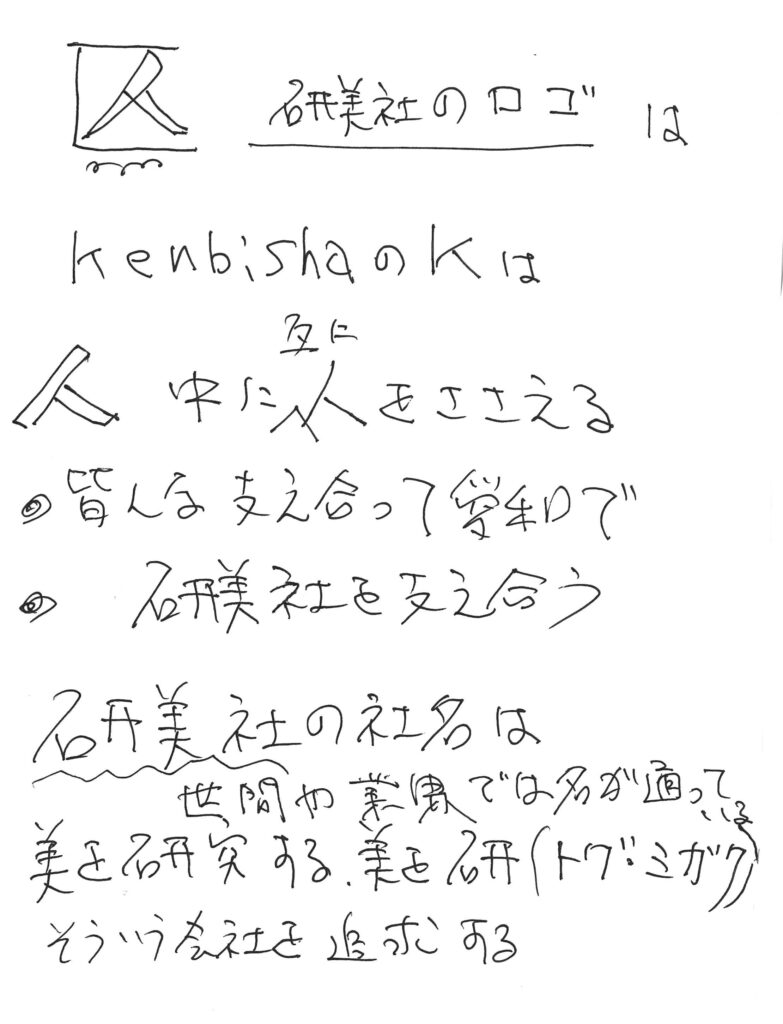 研美社のロゴは
kenbishaのKは
互に
人 中に人をささえる
皆んな支え合って愛和で
研美社を支え合う
研美社の社名は
世間や業界では名が通っている
美を研究する、美を研(トグ・ミガク)
そういう会社を追求する